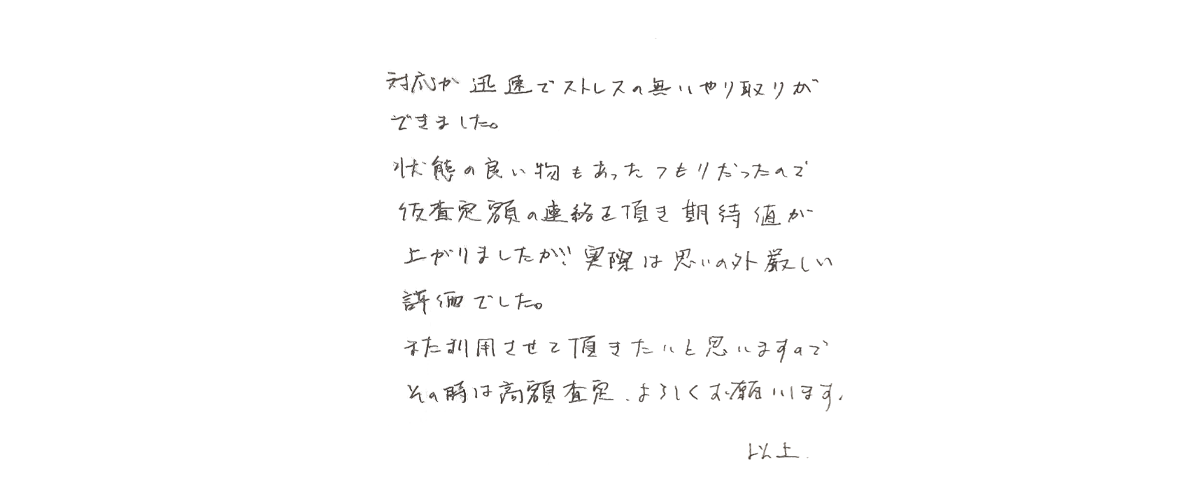 対応が迅速でストレスの無いやり取りが
できました。
状態の良い物もあったつもりだったので
仮査定額の連絡を頂き期待値が
上がりましたが、実際は思いの外厳しい
評価でした。
また利用させて頂きたいと思いますので
その時は高額査定、よろしくお願いします。
以上.